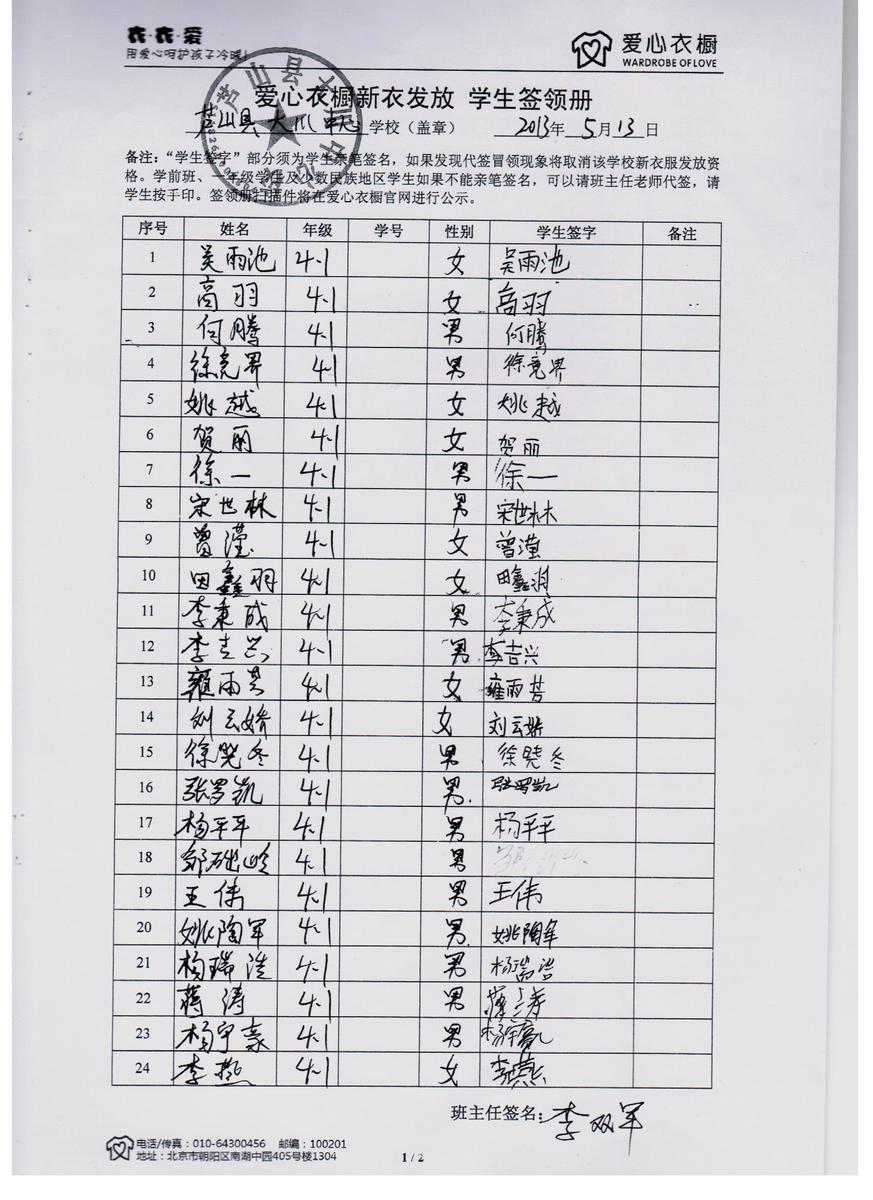 衣·衣·爱
用爱心呵护孩子冷暖!
爱心衣橱
WARDROBE OF LOVE
爱心衣橱新衣发放 学生签领册
芦山县大川中心学校（盖章） 2013年 5月13日
备注：“学生签字”部分须为学生亲笔签名，如果发现代签冒领现象将取消该学校新衣服发放资
格。学前班、一年级学生及少数民族地区学生如果不能亲笔签名，可以请班主任老师代签，请
学生按手印。签领册扫描件将在爱心衣橱官网进行公示。
序号 姓名 年级 学号 性别 学生签字 备注
1 吴雨池 4.1 女 吴雨池
2 高羽 4.1 女 高羽
3 何腾 4.1 男 何腾
4 徐竞界 4.1 男 徐竞界
5 姚越 4.1 女 姚越
6 贺丽 4.1 女 贺丽
7 徐一 4.1 男 徐一
8 宋世林 4.1 男 宋世林
9 曾滢 4.1 女 曾滢
10 田鑫羽 4.1 女 田鑫羽
11 李秉成 4.1 男 李秉成
12 李吉兴 4.1 男 李吉兴
13 雍雨芳 4.1 女 雍雨芳
14 刘云娇 4.1 女 刘云娇
15 徐晓冬 4.1 男 徐晓冬
16 张罗凯 4.1 男 张罗凯
17 杨平平 4.1 男 杨平平
18 4.1 男
19 王伟 4.1 男 王伟
20 姚陶军 4.1 男 姚陶军
21 杨瑞浩 4.1 男 杨瑞浩
22 蒋涛 4.1 男
23 杨宇豪 4.1 男
24 李燕 4.1 女 李燕
班主任签名：李双军
电话/传真：010-64300456 邮编：100201
地址：北京市朝阳区南湖中园405号楼1304
1 / 2